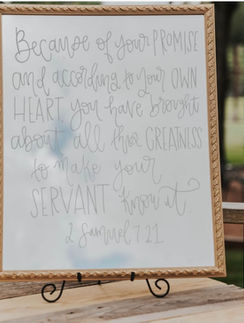 Because of your PROMISE
and according to your OWN
HEART you have brought
about all this GREATNESS
to make your
SERVANT know it
2 Samuel 7:21